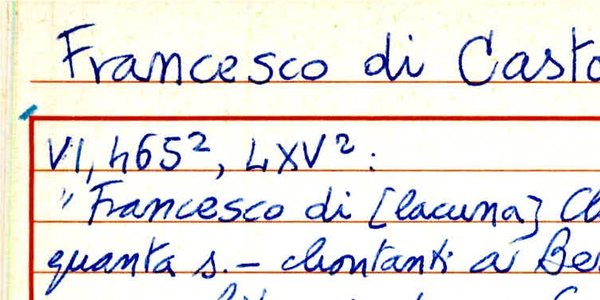 Francesco di Casto
VI, 465², LXV² :
"Francesco di [lacuna] Ch
quanta s. – chontanti a Be